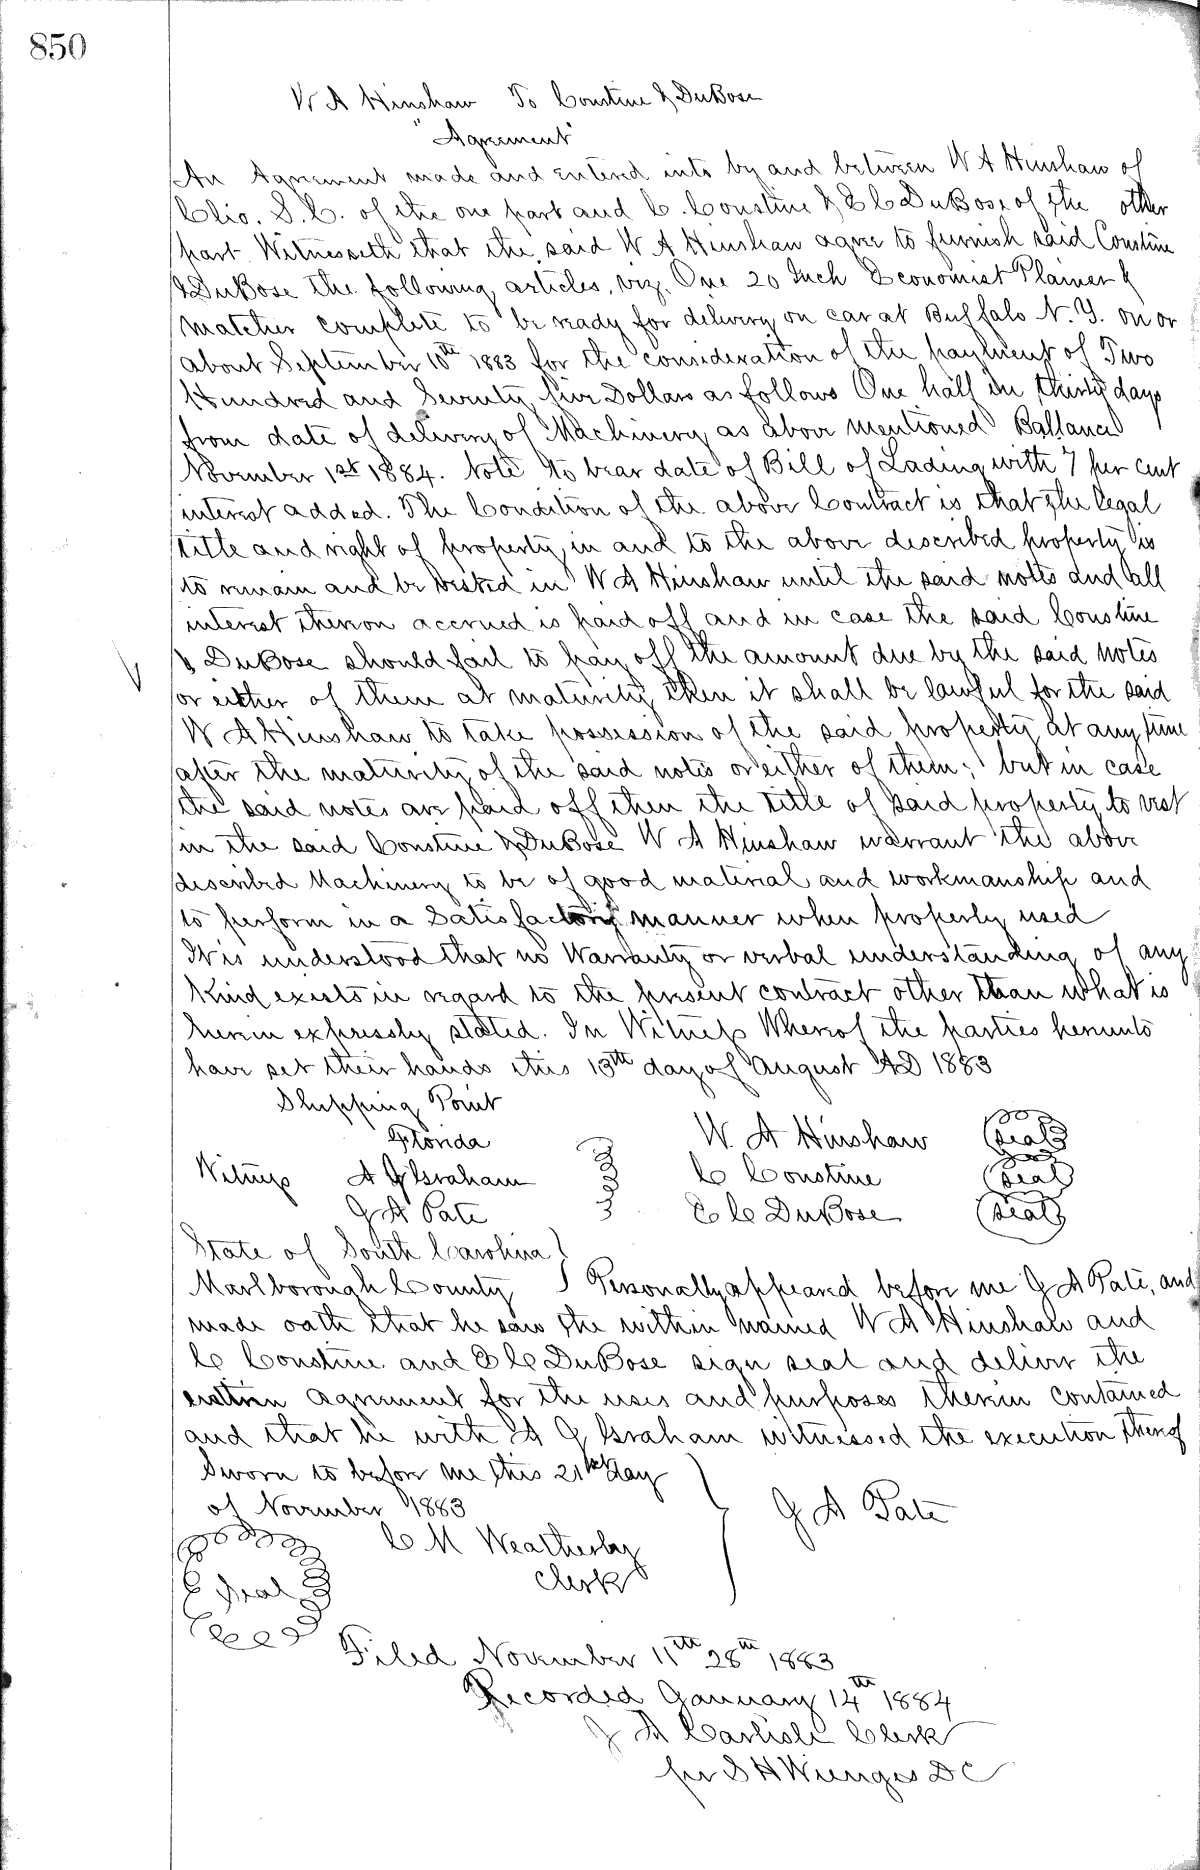 850
W A Hinshaw To Constine & DuBose
"Agreement"
An Agreement made and entered into by and between W A Hinshaw of
Clio. S. C. of the one part and C. Constine & E C DuBose of the other
part. Witnesseth that the said W A Hinshaw agree to furnish said Constine
& DuBose the following articles, viz. One 20 Inch Economist Plainer &
matcher complete to be ready for delivery on car at Buffalo N. Y. on or
about September 10th 1883 for the consideration of the payment of Two
Hundred and Seventy five Dollars as follows One half in thirty days
from date of delivery of Machinery as above mentioned Ballance
November 1st 1884. Note to bear date of Bill of Lading with 7 per cent
interest added. The Condition of the above Contract is that the legal
title and right of property in and to the above described property is
to remain and be vested in W A Hinshaw until the said notts and all
interest thereon accrued is paid off and in case the said Constine
& DuBose should fail to pay off the amount due by the said notes
or either of them at maturity then it shall be lawful for the said
W A Hinshaw to take possession of the said property at any time
after the maturity of the said notes or either of them; but in case
the said notes are paid off then the title of said property to vest
in the said Constine & DuBose W A Hinshaw warrant the above
described Machinery to be of good material and workmanship and
to perform in a Satisfactory manner when properly used
It is understood that no Warranty or verbal understanding of any
Kind exists in regard to the present contract other than what is
herein expressly stated. In Witness Whereof the parties hereunto
have set their hands this 13th day of August AD 1883
Shipping Point
Florida
W. A Hinshaw seal
Witness A G Graham C Constine seal
J A Pate E C DuBose seal
State of South Carolina
Marlborough County Personally appeared before me J A Pate, and
made oath that he saw the within named W A Hinshaw and
C Constine and E C DuBose sign seal and deliver the
within agreement for the uses and purposes therein contained
and that he with A G Graham witnessed the execution thereof
Sworn to before me this 21st day
of November 1883
J A Pate
C M Weatherby
Clerk
Seal
Filed November 11th 28th 1883
Recorded January 14th 1884
J A Carlisle Clerk
per S H Wienges D C